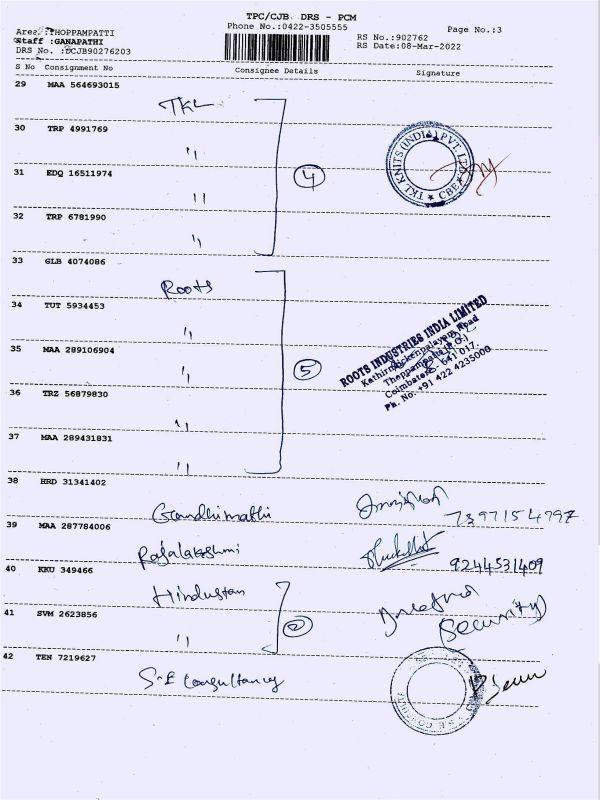 TPC/CJB DRS - PCM
Phone No.:0422-3505555
Page No.:3
Area :THOPPAMPATTI
Staff :GANAPATHI
DRS No. :DCJB90276203
RS No.:902762
RS Date:08-Mar-2022
S No Consignment No Consignee Details Signature
29 MAA 564693015
TKL
30 TRP 4991769
"
31 EDQ 16511974
"
4
TKL KNITS (INDIA) PVT. LTD. CBE
32 TRP 6781990
"
33 GLB 4074086
Roots
34 TUT 5934453
"
35 MAA 289106904
"
5
ROOTS INDUSTRIES INDIA LIMITED
Kathirnaickenpalayam Road
Thoppampatti (P.O.)
Coimbatore - 641 017.
Ph. No. +91 422 4235000
36 TRZ 56879830
"
37 MAA 289431831
"
38 HRD 31341402
Gandhimathi
7397154797
39 MAA 287784006
Rajalakshmi
9244531409
40 KKU 349466
Hindustan
41 SVM 2623856
"
2
Security
42 TEN 7219627
S-E Consultancy